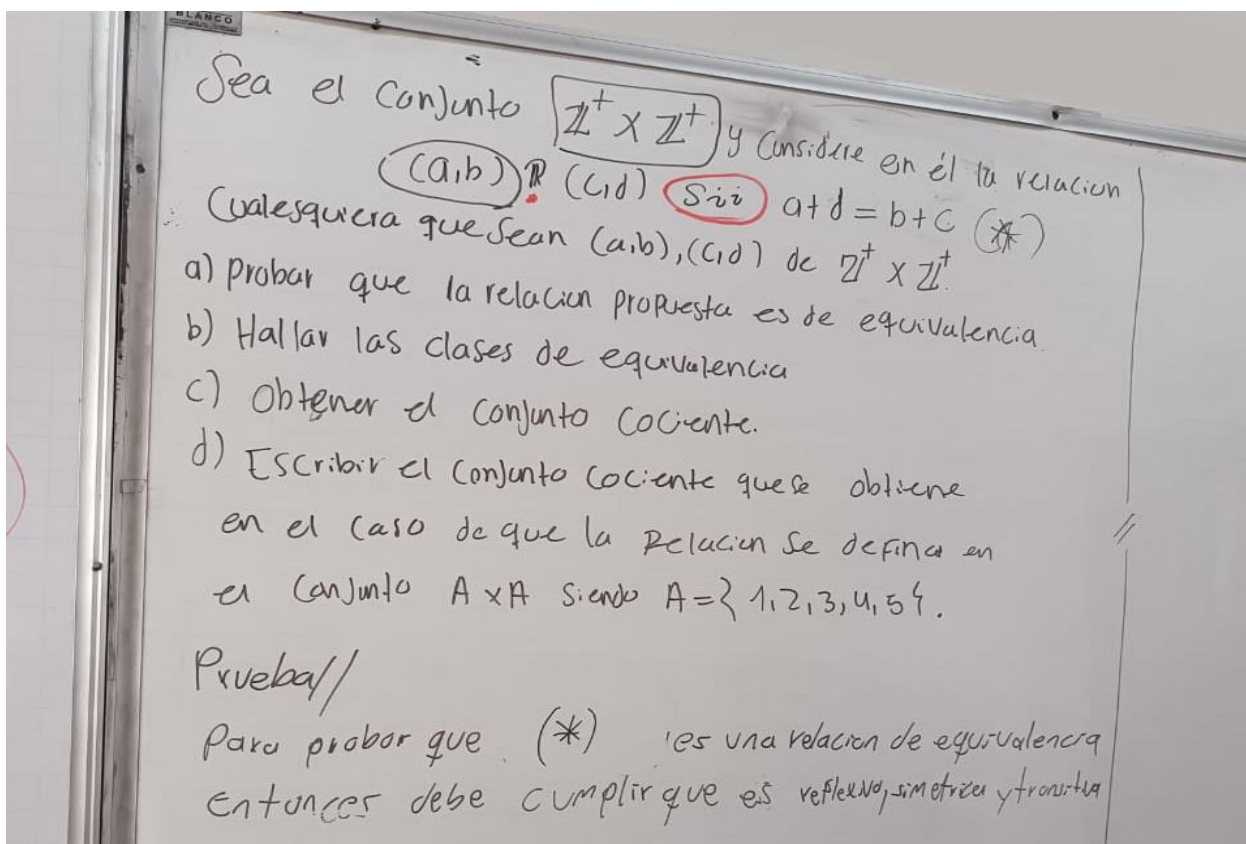 BLANCO
Sea el Conjunto ℤ⁺ × ℤ⁺ y Considere en él la relacion
(a,b) R (c,d) Sii a+d = b+c (*)
Cualesquiera que Sean (a,b), (c,d) de ℤ⁺ × ℤ⁺.
a) probar que la relacion propuesta es de equivalencia.
b) Hallar las clases de equivalencia
c) Obtener el conjunto cociente.
d) Escribir el conjunto cociente que se obtiene
en el caso de que la Relacion se defina en
el Conjunto A × A siendo A = { 1, 2, 3, 4, 5 }.
Prueba//
Para probar que (*) es una relacion de equivalencia
Entonces debe cumplir que es reflexiva, simetrica y transitiva